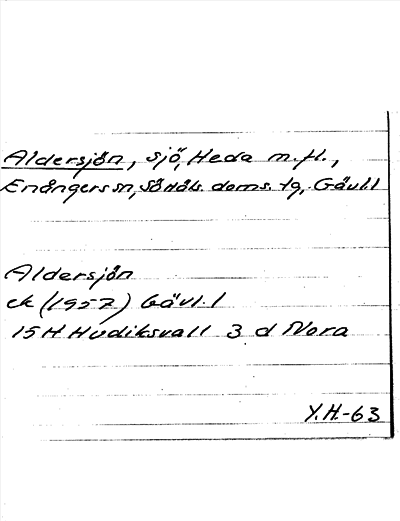 Aldersjön, sjö, Heda m.fl.,
Enångers sn, Sö Häls. doms. tg, Gävl.l
Aldersjön
ek (1957) Gävl.l
15 H Hudiksvall 3 d Nora
Y.H.-63